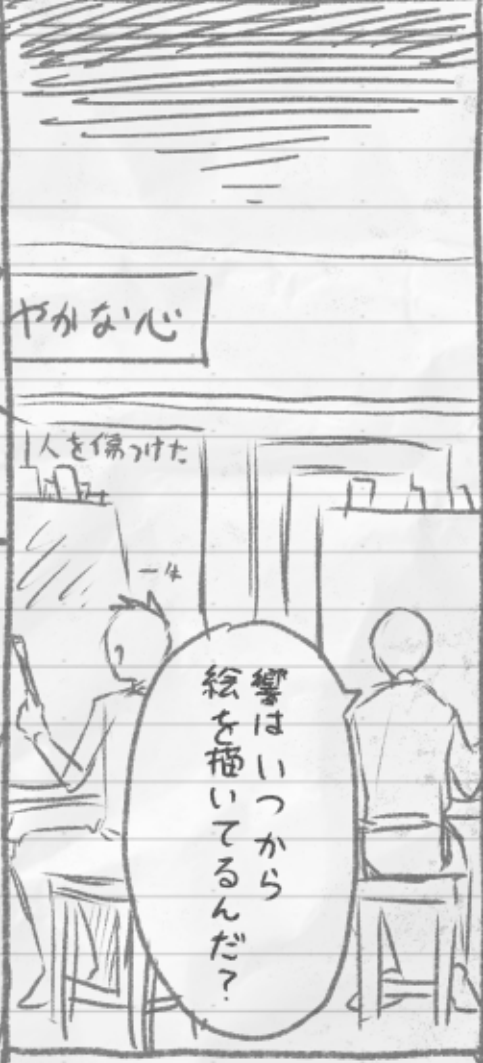 やかない心
人を傷つけた
響はいつから
絵を描いてるんだ?